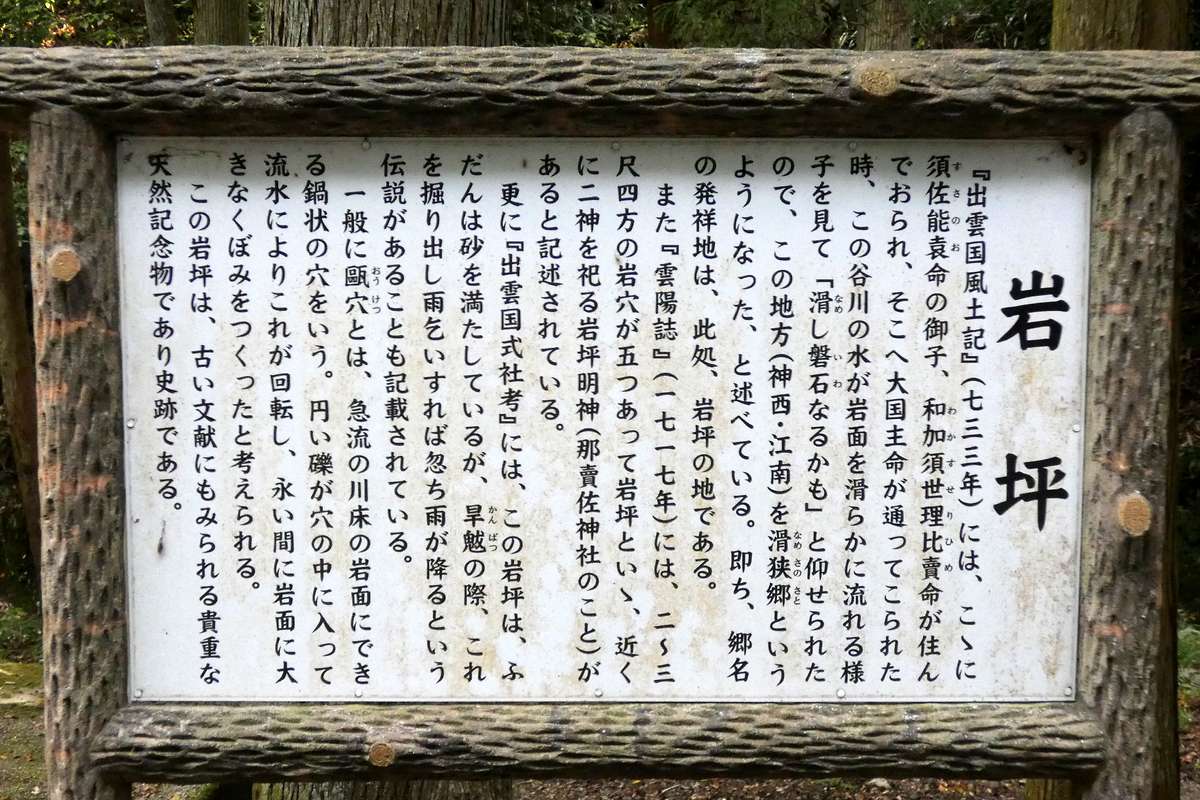 岩坪
『出雲国風土記』(七三三年)には、こゝに
須佐能袁命の御子、和加須世理比賣命が住ん
でおられ、そこへ大国主命が通ってこられた
時、この谷川の水が岩面を滑らかに流れる様
子を見て「滑し磐石なるかも」と仰せられた
ので、この地方(神西・江南)を滑狭郷という
ようになった、と述べている。即ち、郷名
の発祥地は、此処、岩坪の地である。
また『雲陽誌』(一七一七年)には、二〜三
尺四方の岩穴が五つあって岩坪といゝ、近く
に二神を祀る岩坪明神(那賣佐神社のこと)が
あると記述されている。
更に『出雲国式社考』には、この岩坪は、ふ
だんは砂を満たしているが、旱魃の際、これ
を掘り出し雨乞いすれば忽ち雨が降るという
伝説があることも記載されている。
一般に甌穴とは、急流の川床の岩面にでき
る鍋状の穴をいう。円い礫が穴の中に入って
流水によりこれが回転し、永い間に岩面に大
きなくぼみをつくったと考えられる。
この岩坪は、古い文献にもみられる貴重な
天然記念物であり史跡である。
すさのお
わかすせりひめ
なめ
いわ
なめさのさと
かんばつ
おうけつ